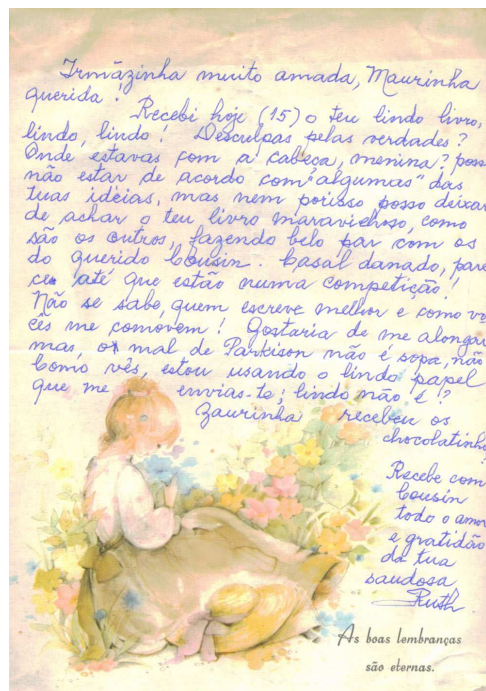 Irmãzinha muito amada, Maurinha
querida!
Recebi hoje (15) o teu lindo livro,
lindo, lindo! Desculpas pelas verdades?
Onde estavas com a cabeça, menina? poss
não estar de acordo com "algumas" das
tuas idéias, mas nem porisso posso deixar
de achar o teu livro maravilhoso, como
são os outros, fazendo belo par com os
do querido Cousin. Casal danado, pare
ce até que estão numa competição!
Não se sabe, quem escreve melhor e como vo
cês me comovem! Gostaria de me alongar
mas, o mal de Parkison não é sopa, não
Como vês, estou usando o lindo papel
que me envias-te; lindo não é!?
Zaurinha recebeu os
chocolatinho
Recebe com
Cousin
todo o amor
e gratidão
da tua
saudosa
Ruth.
As boas lembranças
são eternas.